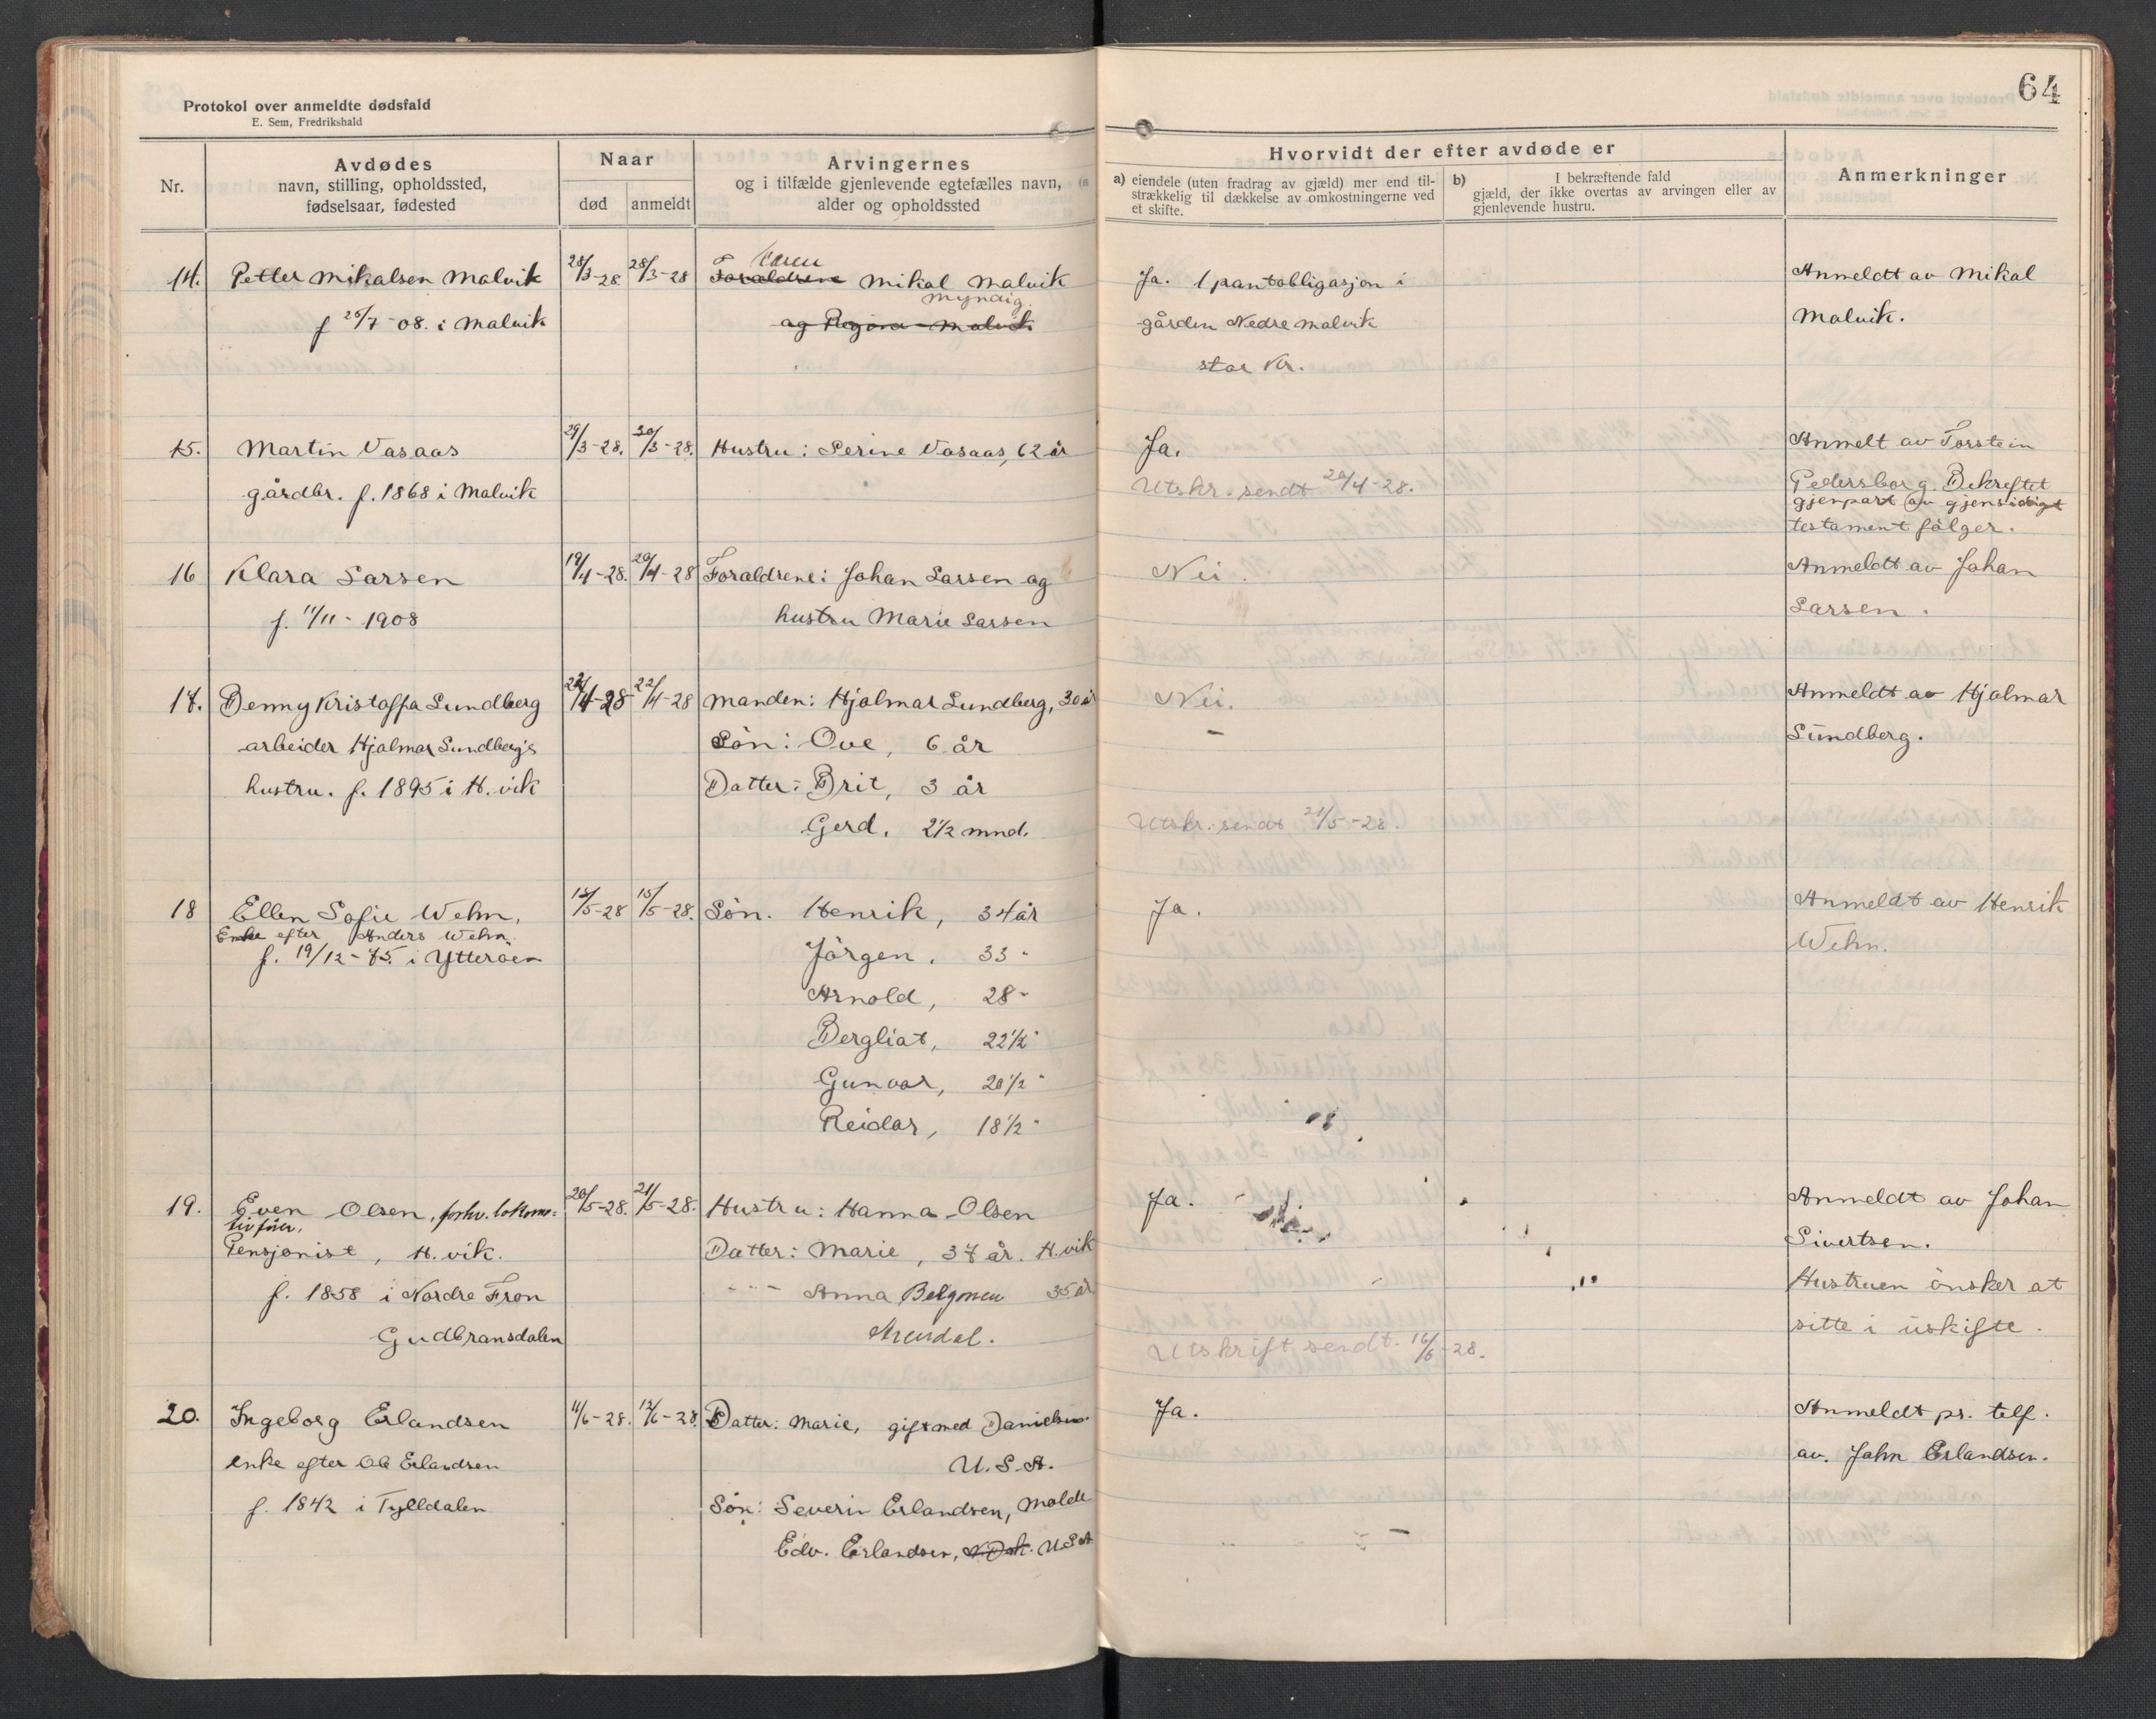 64
Protokol over anmeldte dødsfald
E. Sem, Fredrikshald
Nr.
Avdødes
navn, stilling, opholdssted,
fødselsaar, fødested
Naar
død
anmeldt
Arvingernes
og i tilfælde gjenlevende egtefælles navn,
alder og opholdssted
Hvorvidt der efter avdøde er
a) eiendele (uten fradrag av gjæld) mer end til-
strækkelig til dækkelse av omkostningerne ved
et skifte.
b) I bekræftende fald
gjæld, der ikke overtas av arvingen eller av
gjenlevende hustru.
Anmerkninger
14. Petter Mikalsen Malvik 28/3-28 28/3-28 Foraldrene Mikal Malvik Ja. 1 pantobligasjon i Anmeldt av Mikal
myndig
f 25/7-08. i Malvik og Regina Malvik gården Nedre Malvik Malvik.
stor kr.
15. Martin Vasaas 29/3-28. 30/3-28. Hustru: Serine Vasaas, 62 år Ja. Anmelt av Torstein
gårdbr. f. 1868 i Malvik Utskr. sendt 20/4-28. Pedersborg. Bekreftet
gjenpart av gjensidigt
testament følger.
16 Klara Larsen 19/4-28. 20/4-28 Foraldrene: Johan Larsen og Nei. Anmeldt av Johan
f. 11/11-1908 hustru Marie Larsen Larsen.
17. Benny Kristoffa Sundberg 22/4-28 22/4-28 Manden: Hjalmar Sundberg, 30 år Nei. Anmeldt av Hjalmar
arbeider Hjalmar Sundbergs Søn: Ove, 6 år Sundberg.
hustru. f. 1895 i H.vik Datter: Brit, 3 år
Gerd, 2 1/2 mnd. Utskr. sendt 21/5-28.
18 Ellen Sofie Wehn, 15/5-28 15/5-28. Søn. Henrik, 34 år Ja. Anmeldt av Henrik
Enke efter Anders Wehn. Wehn.
f. 19/12-75. i Ytterøen Jørgen, 33 "
Arnold, 28 "
Bergliot, 22 1/2 "
Gunvor, 20 1/2 "
Reidar, 18 1/2 "
19. Even Olsen, forhv. lokomo= 20/5-28. 21/5-28. Hustru: Hanna Olsen Ja. Anmeldt av Johan
tivfører.
Pensjonist, H.vik. Datter: Marie, 37 år. H.vik Sivertsen.
f. 1858 i Nordre Fron - - - Anna 35 år Hustruen ønsker at
Gudbransdalen Arendal. sitte i uskifte.
Utskrift sendt. 16/6-28.
20. Ingeborg Erlandsen 11/6-28. 12/6-28. Datter: Marie, gift med Danielsen. Ja. Anmeldt pr. telf.
enke efter Ole Erlandsen U.S.A. av. John Erlandsen.
f. 1842 i Tylldalen Søn: Severin Erlandsen, Molde
Edv. Erlandsen, N.Dak. U.S.A